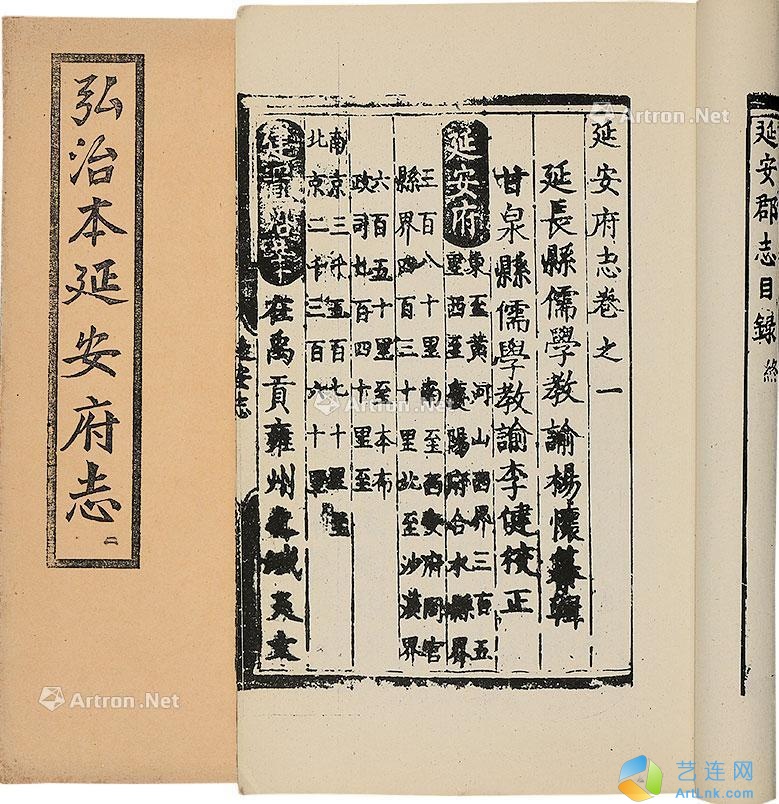 弘治本延安府志
二
延安郡志目録終
延安府志卷之一
延長縣儒學教諭楊懷纂輯
甘泉縣儒學教諭李健校正
延安府
東至黄河山西界三百五
里西至慶陽府合水縣界
三百八十里南至西安府同官
縣界四百三十里北至沙漠界
六百五十里至本布
政司百四十里至
南京三千五百七十里至
北京二千三百六十里
建置沿革
在禹貢雍州之域天文
延安志
Artron.Net
Artron.Net
Artron.Net
Artron.Net
艺连网
ArtLnk.com